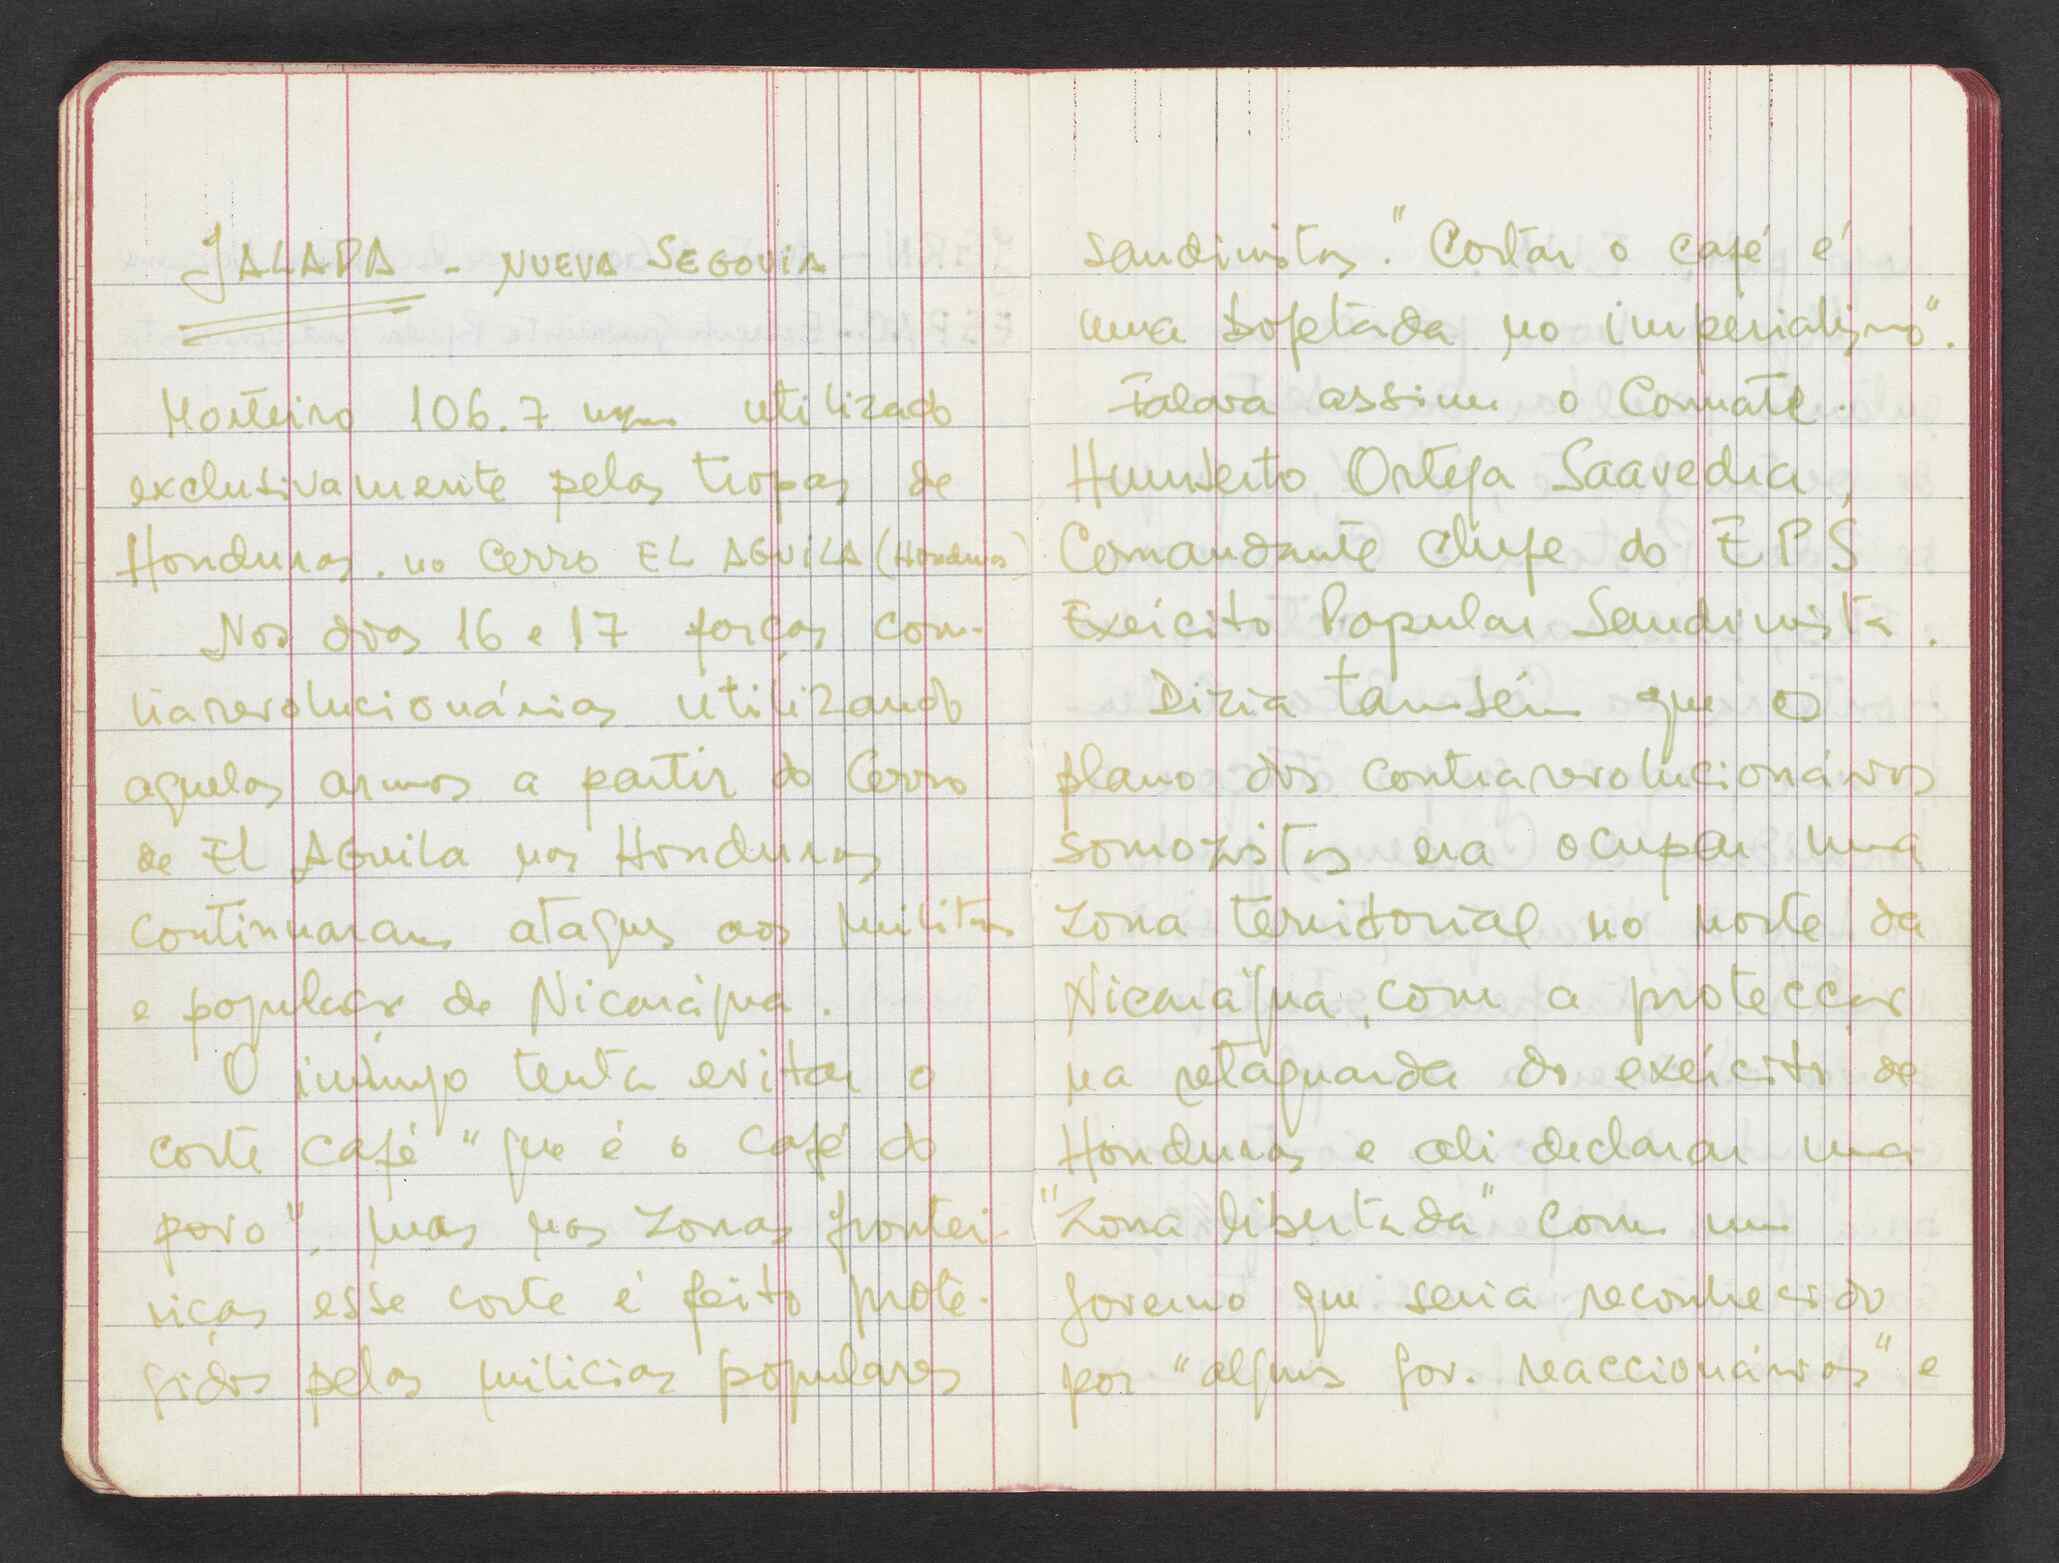 JALAPA - NUEVA SEGOVIA
Morteiro 106.7 mm utilizado
exclusivamente pelas tropas de
Honduras. no Cerro EL AGUILA (Honduras)
Nos dias 16 e 17 forças con-
trarevolucionárias utilizando
aquelas armas a partir do Cerro
de El Aguila nas Honduras
continuaram ataques aos militares
e população de Nicarágua.
O inimigo tenta evitar o
corte café "que é o café do
povo", mas nas zonas frontei-
riças esse corte é feito prote-
gidos pelas milicias populares
sandinistas. "Cortar o café é
uma bofetada no imperialismo".
Falava assim o Comate.
Humberto Ortega Saavedra,
Comandante Chefe do E P S
Exército Popular Sandinista.
Dizia também que o
plano dos contrarevolucionários
somozistas era ocupar uma
zona territorial no norte da
Nicarágua, com a protecção
na retaguarda do exército de
Honduras e ali declarar uma
"Zona libertada" com um
governo que seria reconhecido
por "alguns gov. reaccionários" e